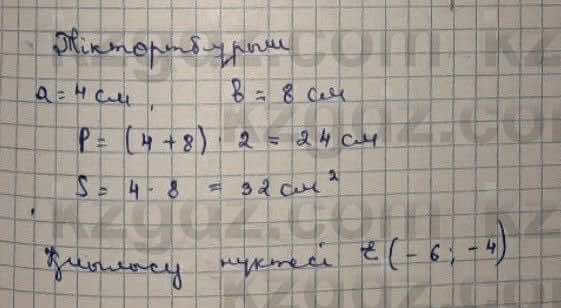 Тіктөртбұрыш
a = 4 см, в = 8 см
P = (4 + 8) · 2 = 24 см
S = 4 · 8 = 32 см²
Қиылысу нүктесі E (– 6; – 4)
kzgdz.com